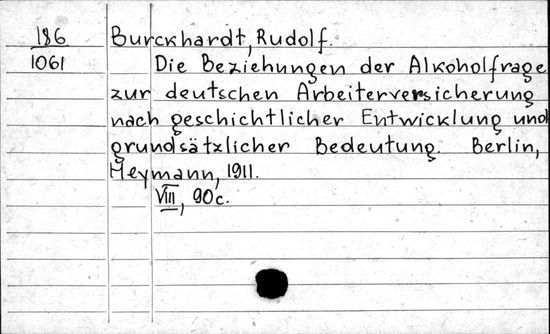 186
1061
Burckhardt, Rudolf.
Die Beziehungen der Alkoholfrage
zur deutschen Arbeiterversicherung
nach geschichtlicher Entwicklung und
grundsätzlicher Bedeutung. Berlin,
Heymann, 1911.
VIII, 90c.